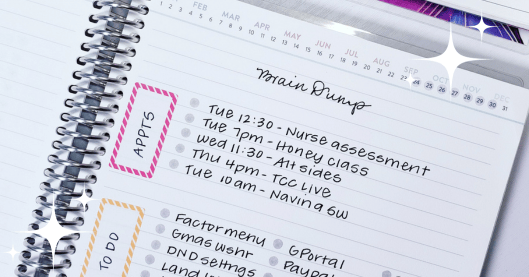 FEB MAR APR MAY JUN JUL AUG SEP OCT NOV DEC
1 2 3 4 5 6 7 8 9 10 11 12 13 14 15 16 17 18 19 20 21 22 23 24 25 26 27 28 29 30 31
Brain Dump
APPTS
Tue 12:30 - Nurse assessment
Tue 7pm - Honey class
Wed 11:30 - Alt sides
Thu 4pm - TCC Live
Tue 10am - Navin a GW
TO DO
Factor menu
Gmas wshr
DND settngs
GPortal
Paypal